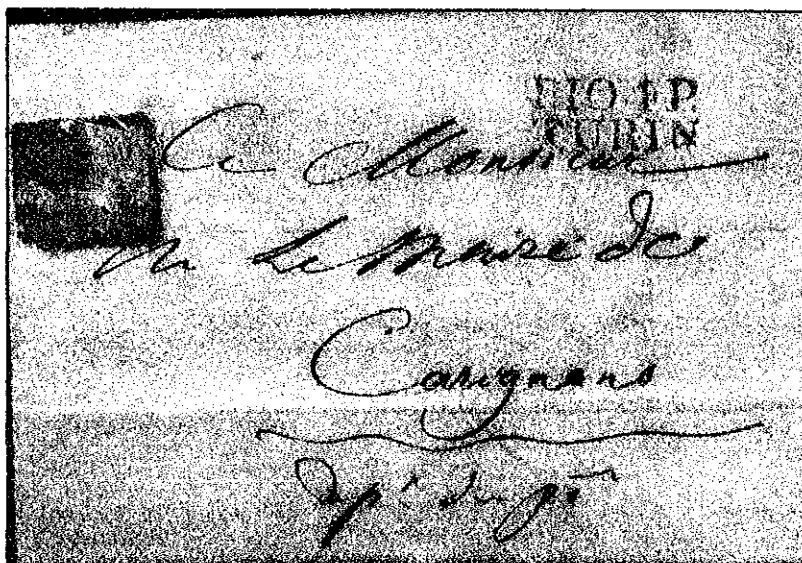 TURIN
A Monsieur
M Le Maire de
Carignano
Dépt du pô